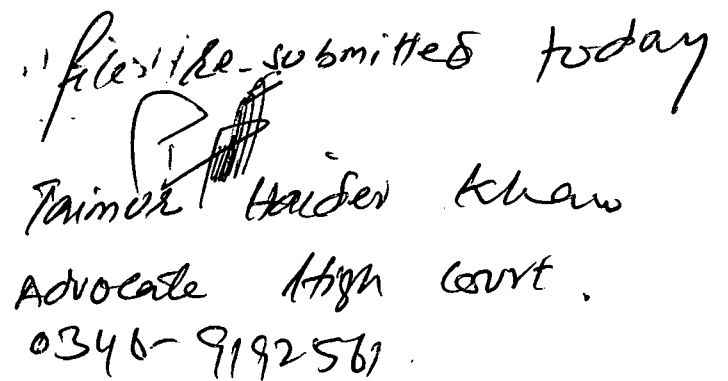 files re-submitted today
Taimur Haider Khan
Advocate High Court.
0346-9192561